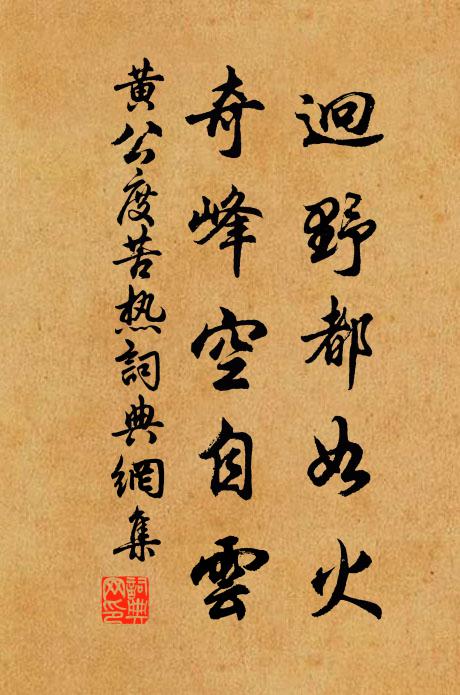 迥野都如火
奇峰空自雲
黃公度苦热詞典網集
詞典网印